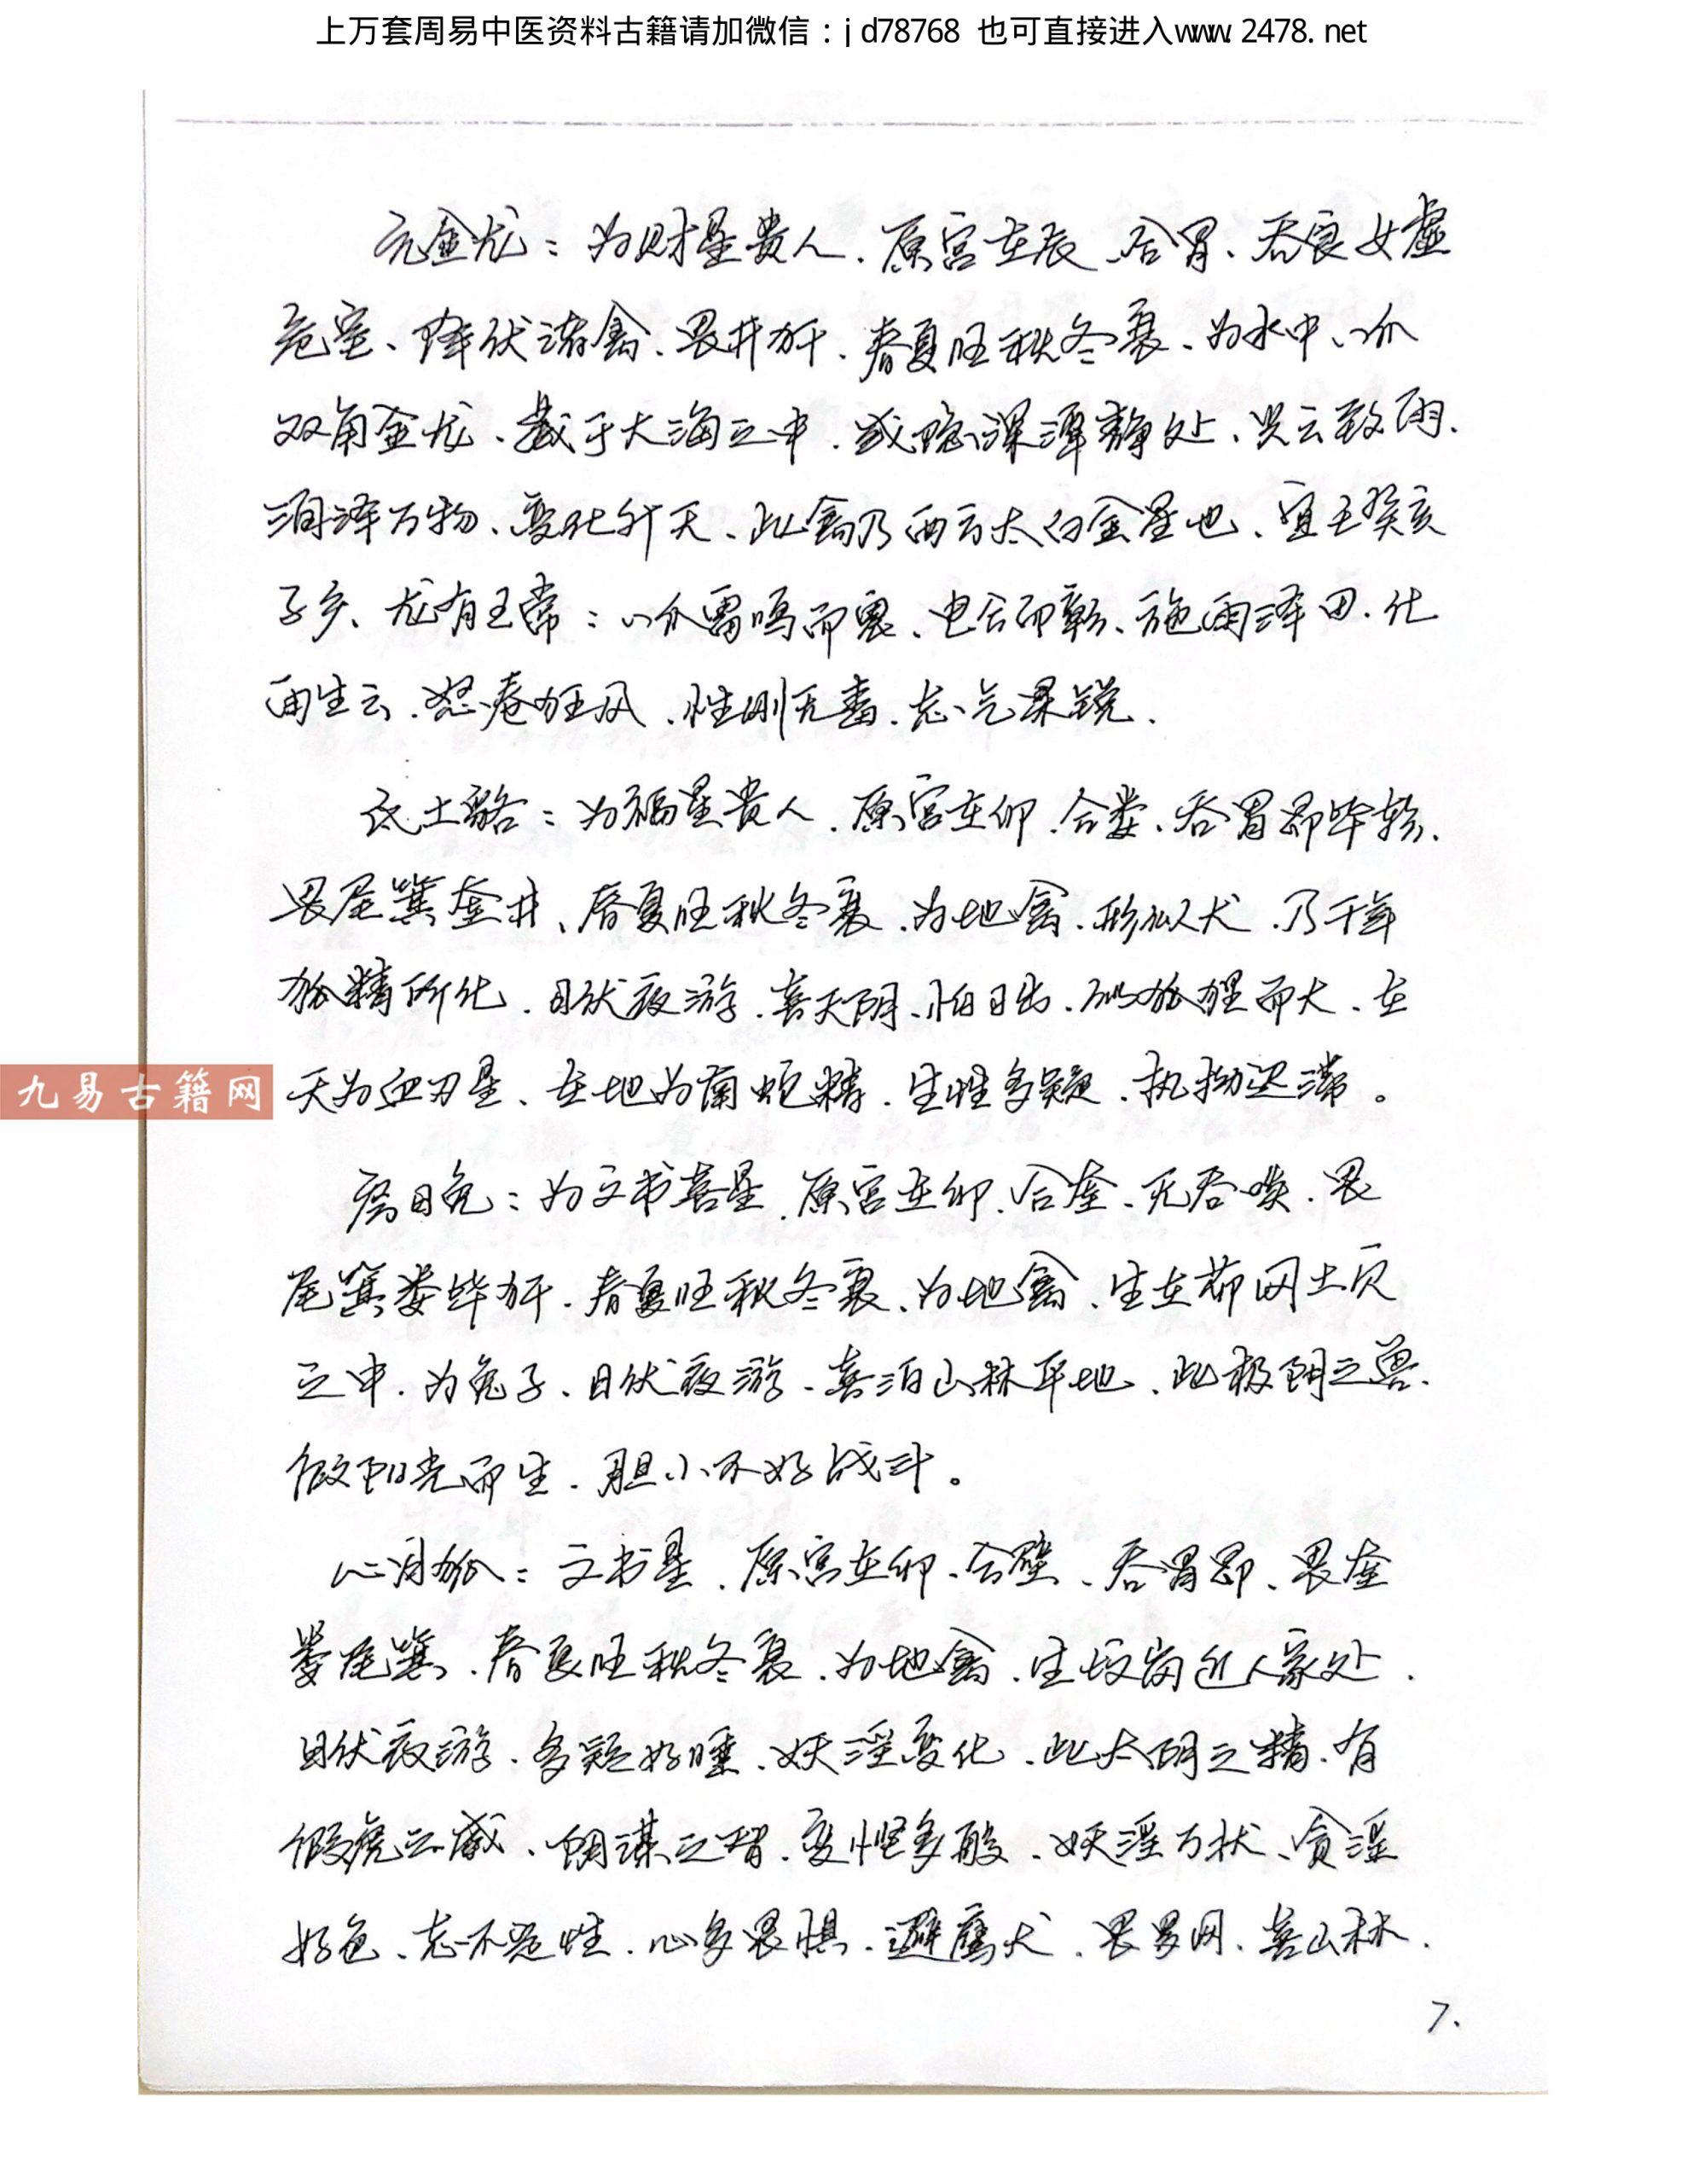 上万套周易中医资料古籍请加微信：jd78768 也可直接进入www.2478.net
亢金龙：为财星贵人、原宫在辰、合胃、吞良女虚
危室、降伏诸禽、畏井犴、春夏旺秋冬衰、为水中八爪
双角金龙、藏于大海之中、或隐深潭静处、兴云致雨、
润泽万物、变化升天、此禽乃西方太白金星也、宜壬癸亥
子乡、龙有王常：八爪雷鸣而震、电合而彰、施雨泽田、化
雨生云、怒卷狂风、性刚无毒、志气果锐、
氐土貉：为福星贵人、原宫在卯、合娄、吞胃昴毕轸、
畏尾箕奎井、春夏旺秋冬衰、为地禽、形似犬、乃千年
狐精所化、日伏夜游、喜天阴、怕日出、似狐狸而大、在
天为血刃星、在地为南蛇精、生性多疑、执拗迟滞。
房日兔：为文书喜星、原宫在卯、合奎、无吞啖、畏
尾箕娄毕犴、春夏旺秋冬衰、为地禽、生在茆冈土穴
之中、为兔子、日伏夜游、喜泊山林平地、此极阴之兽、
假阳光而生、胆小不好战斗。
心月狐：文书星、原宫在卯、合壁、吞胃昴、畏奎
娄尾箕、春夏旺秋冬衰、为地禽、生坟岗近人家处、
日伏夜游、多疑好睡、妖淫变化、此太阴之精、有
假虎之威、朝谋之智、变怪多般、妖淫万状、贪淫
好色、志不定性、心多畏惧、避鹰犬、畏罗网、喜山林、
九易古籍网
7、